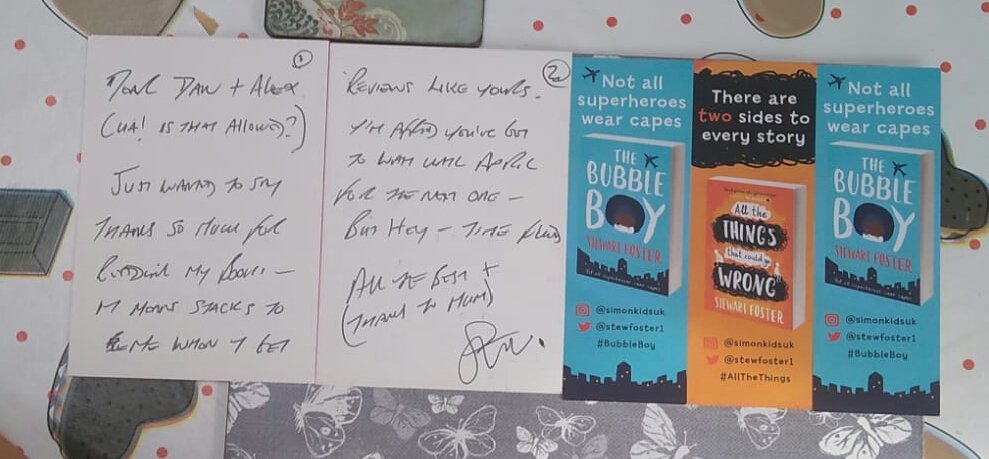 ①
Dear Dan + Alex
(HA! IS THAT Allowed?)
JUST WANTED TO SAY
THANKS SO MUCH FOR
READING MY BOOKS —
IT MEANS STACKS TO
ME WHEN I GET
②
REVIEWS LIKE YOURS.
I'M AFRAID YOU'VE GOT
TO WAIT UNTIL APRIL
FOR THE NEXT ONE —
BUT HEY — TIME FLIES
ALL THE BEST +
(THANKS TO MUM)
Not all
superheroes
wear capes
THE
BUBBLE
BOY
STEWART FOSTER
Not all superheroes wear capes
@simonkidsuk
@stewfoster1
#BubbleBoy
There are
two sides to
every story
All the
THINGS
that could go
WRONG
STEWART FOSTER
@simonkidsuk
@stewfoster1
#AllTheThings
Not all
superheroes
wear capes
THE
BUBBLE
BOY
STEWART FOSTER
Not all superheroes wear capes
@simonkidsuk
@stewfoster1
#BubbleBoy